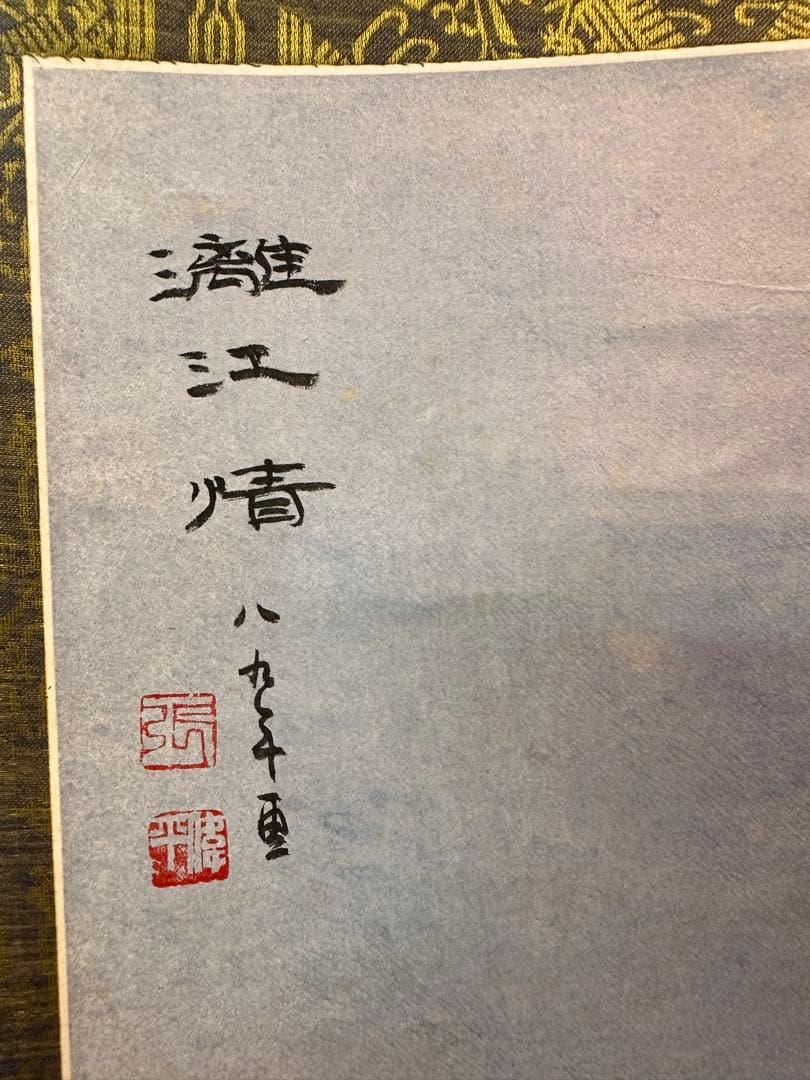 灕江情
八九年畫
張
偉平